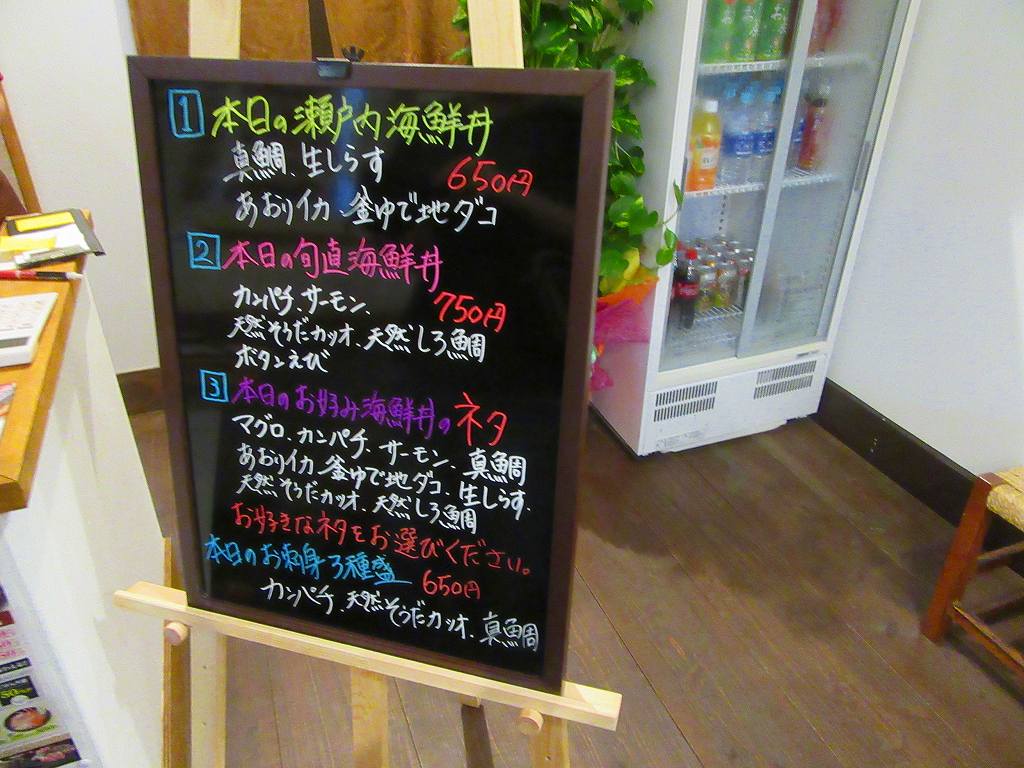 1 本日の瀬戸内海鮮丼
真鯛、生しらす 650円
あおりイカ、釜ゆで地ダコ
2 本日の旬直海鮮丼
カンパチ、サーモン、 750円
天然そうだカツオ、天然しろ鯛
ボタンえび
3 本日のお好み海鮮丼のネタ
マグロ、カンパチ、サーモン、真鯛
あおりイカ、釜ゆで地ダコ、生しらす、
天然そうだカツオ、天然しろ鯛
お好きなネタをお選びください。
本日のお刺身3種盛 650円
カンパチ、天然そうだカツオ、真鯛